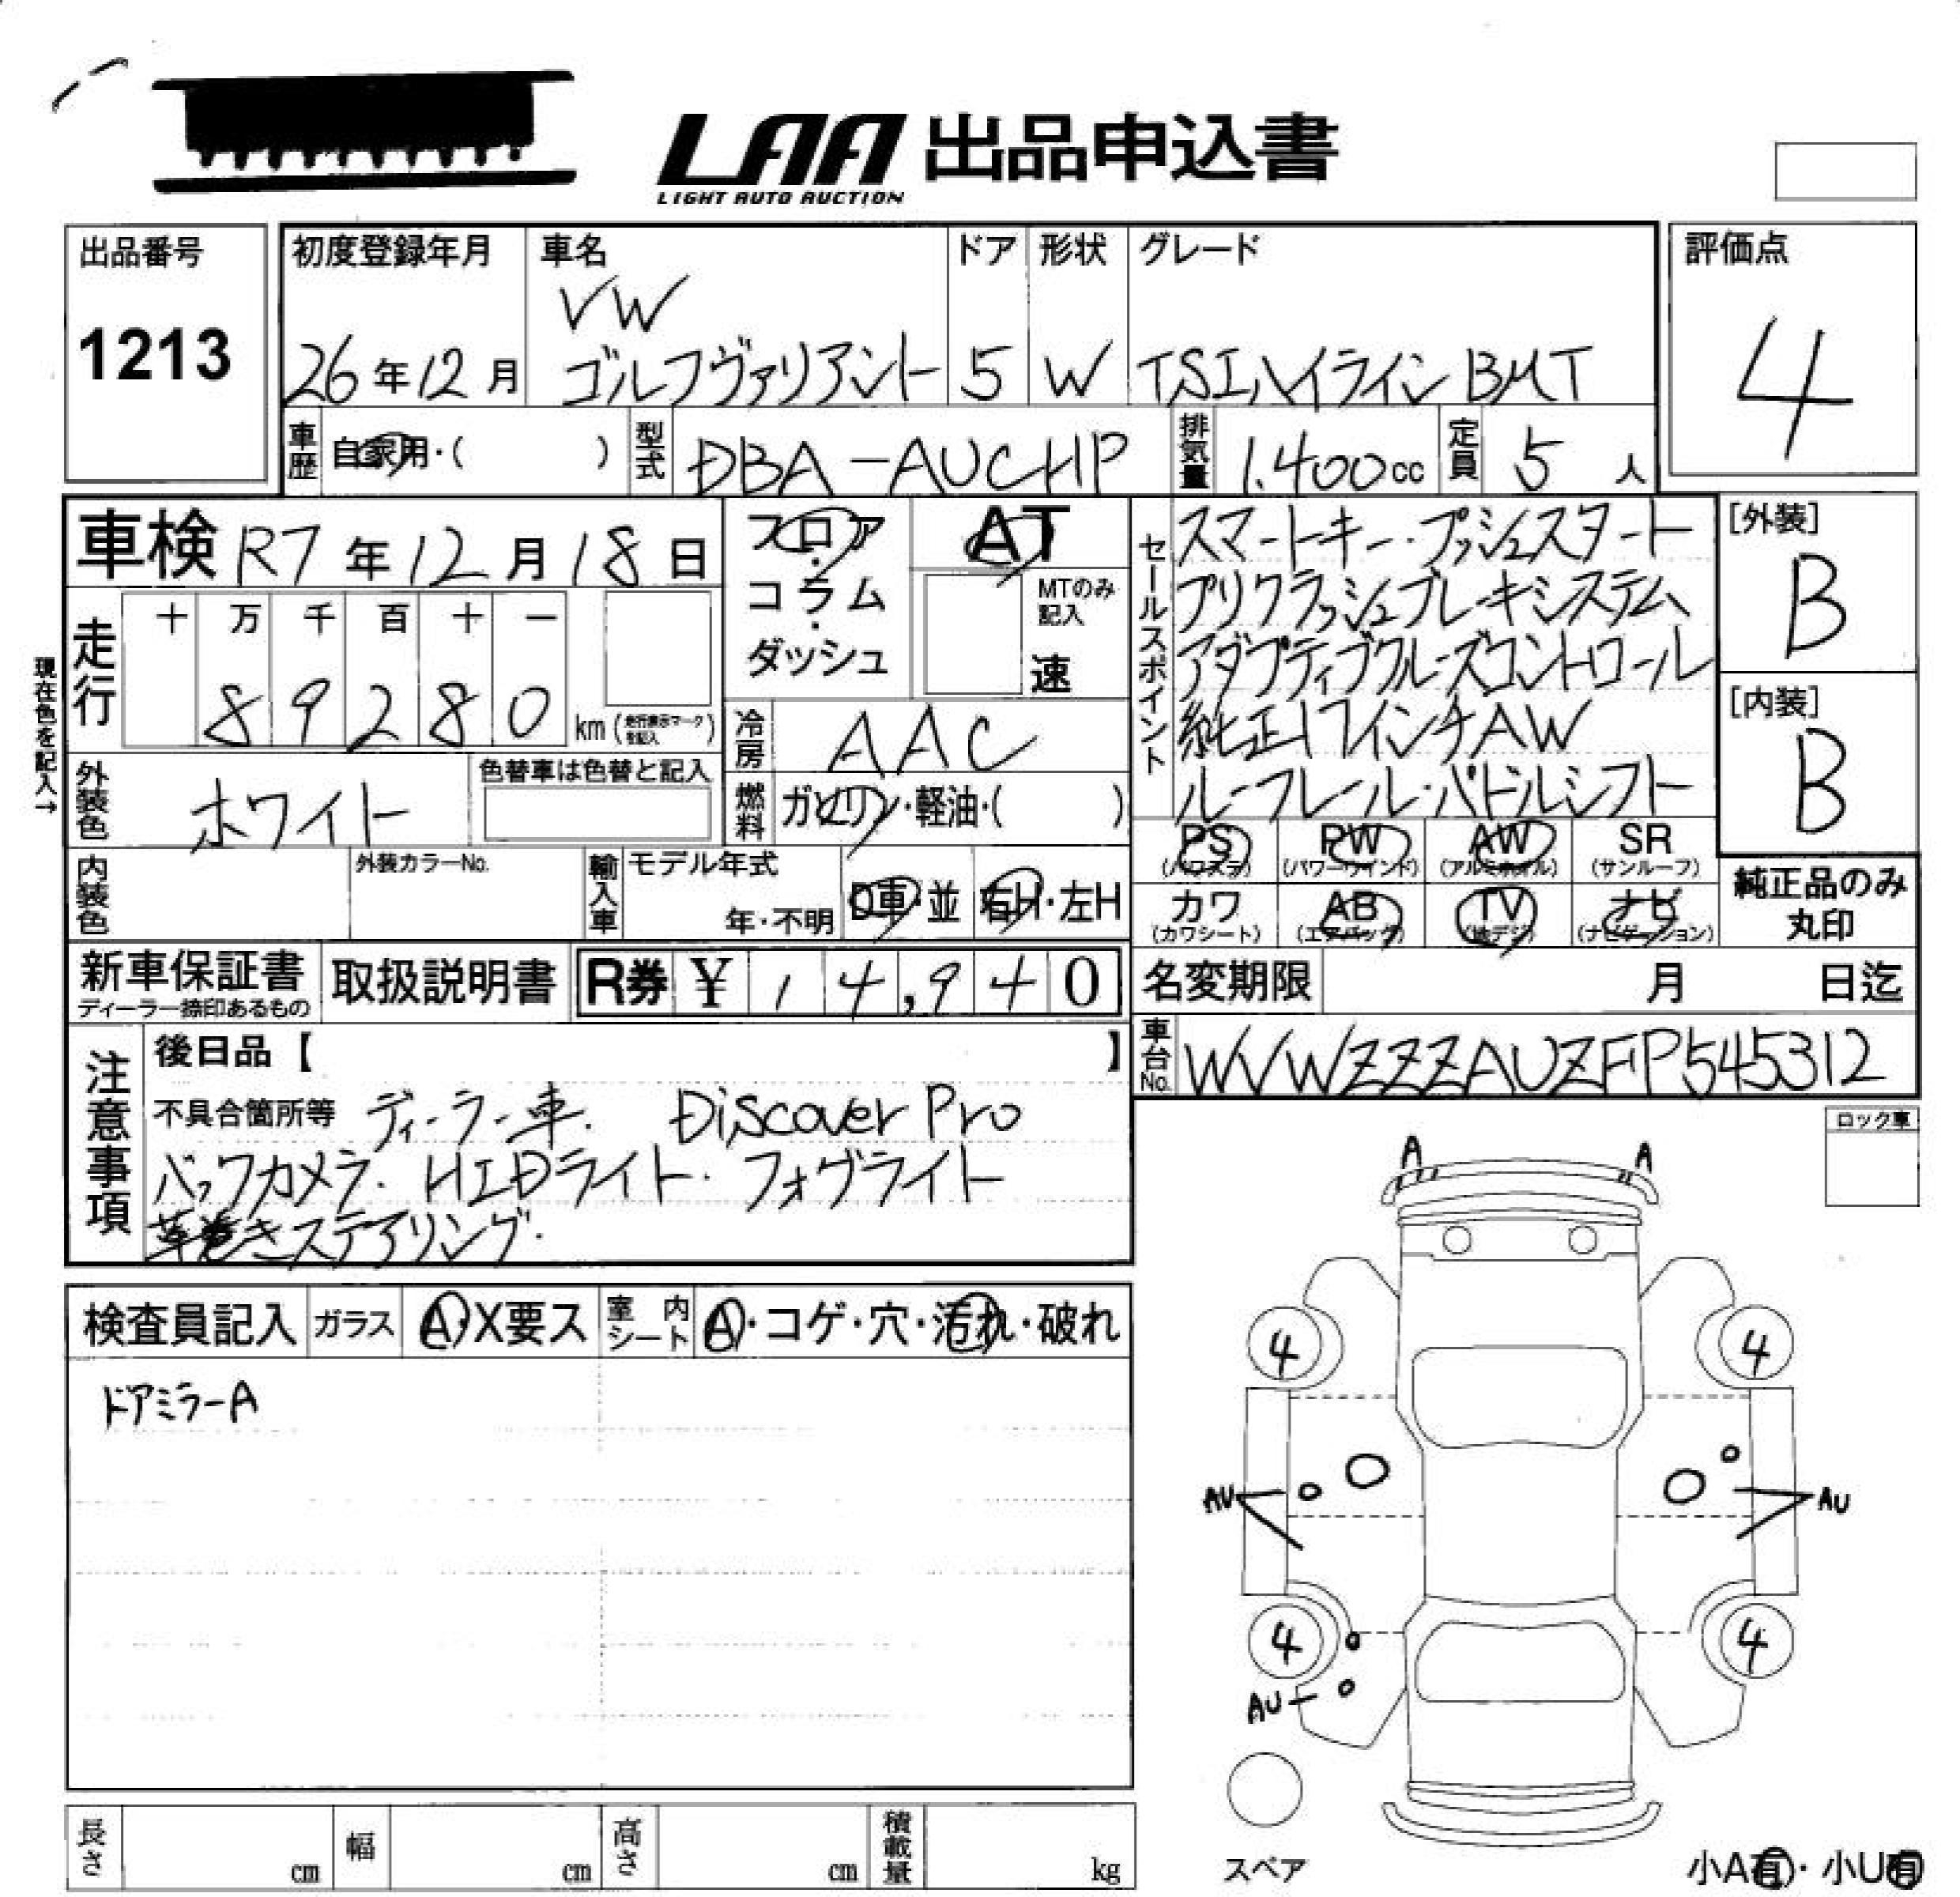 LAA 出品申込書
LIGHT AUTO AUCTION
出品番号
1213
初度登録年月
26年12月
車名
VW
ゴルフヴァリアント
ドア
5
形状
W
グレード
TSIハイラインBMT
評価点
4
車歴 自家用・( )
型式 DBA-AUCHP
排気量 1.400cc
定員 5人
車検 R7年12月18日
フロア・コラム・ダッシュ
AT
MTのみ記入
速
現在色を記入→
走行
十 万 千 百 十 一
8 9 2 8 0 km (走行表示マークを記入)
冷房 AAC
外装色 ホワイト
色替車は色替と記入
燃料 ガソリン・軽油・( )
内装色
外装カラーNo.
輸入車 モデル年式
年・不明 D車・並 右H・左H
セールスポイント
スマートキー・プッシュスタート
プリクラッシュブレーキシステム
アダプティブクルーズコントロール
純正17インチAW
ルーフレール・パドルシフト
[外装]
B
[内装]
B
PS (パワステ) PW (パワーウインド) AW (アルミホイル) SR (サンルーフ)
カワ (カワシート) AB (エアバッグ) TV (地デジ) ナビ (ナビゲーション)
純正品のみ
丸印
新車保証書
ディーラー捺印あるもの
取扱説明書
R券 ¥ 14,940
名変期限 月 日迄
車台No. WVWZZZAUZFP545312
注意事項
後日品【 】
不具合箇所等 ディーラー車. Discover Pro
バックカメラ. HIDライト. フォグライト
革巻きステアリング.
ロック車
検査員記入 ガラス A・X要ス 室内シート A・コゲ・穴・汚れ・破れ
ドアミラーA
A A
4 4
AU AU
4 4
AU
スペア
長さ cm 幅 cm 高さ cm 積載量 kg
小A有・小U有